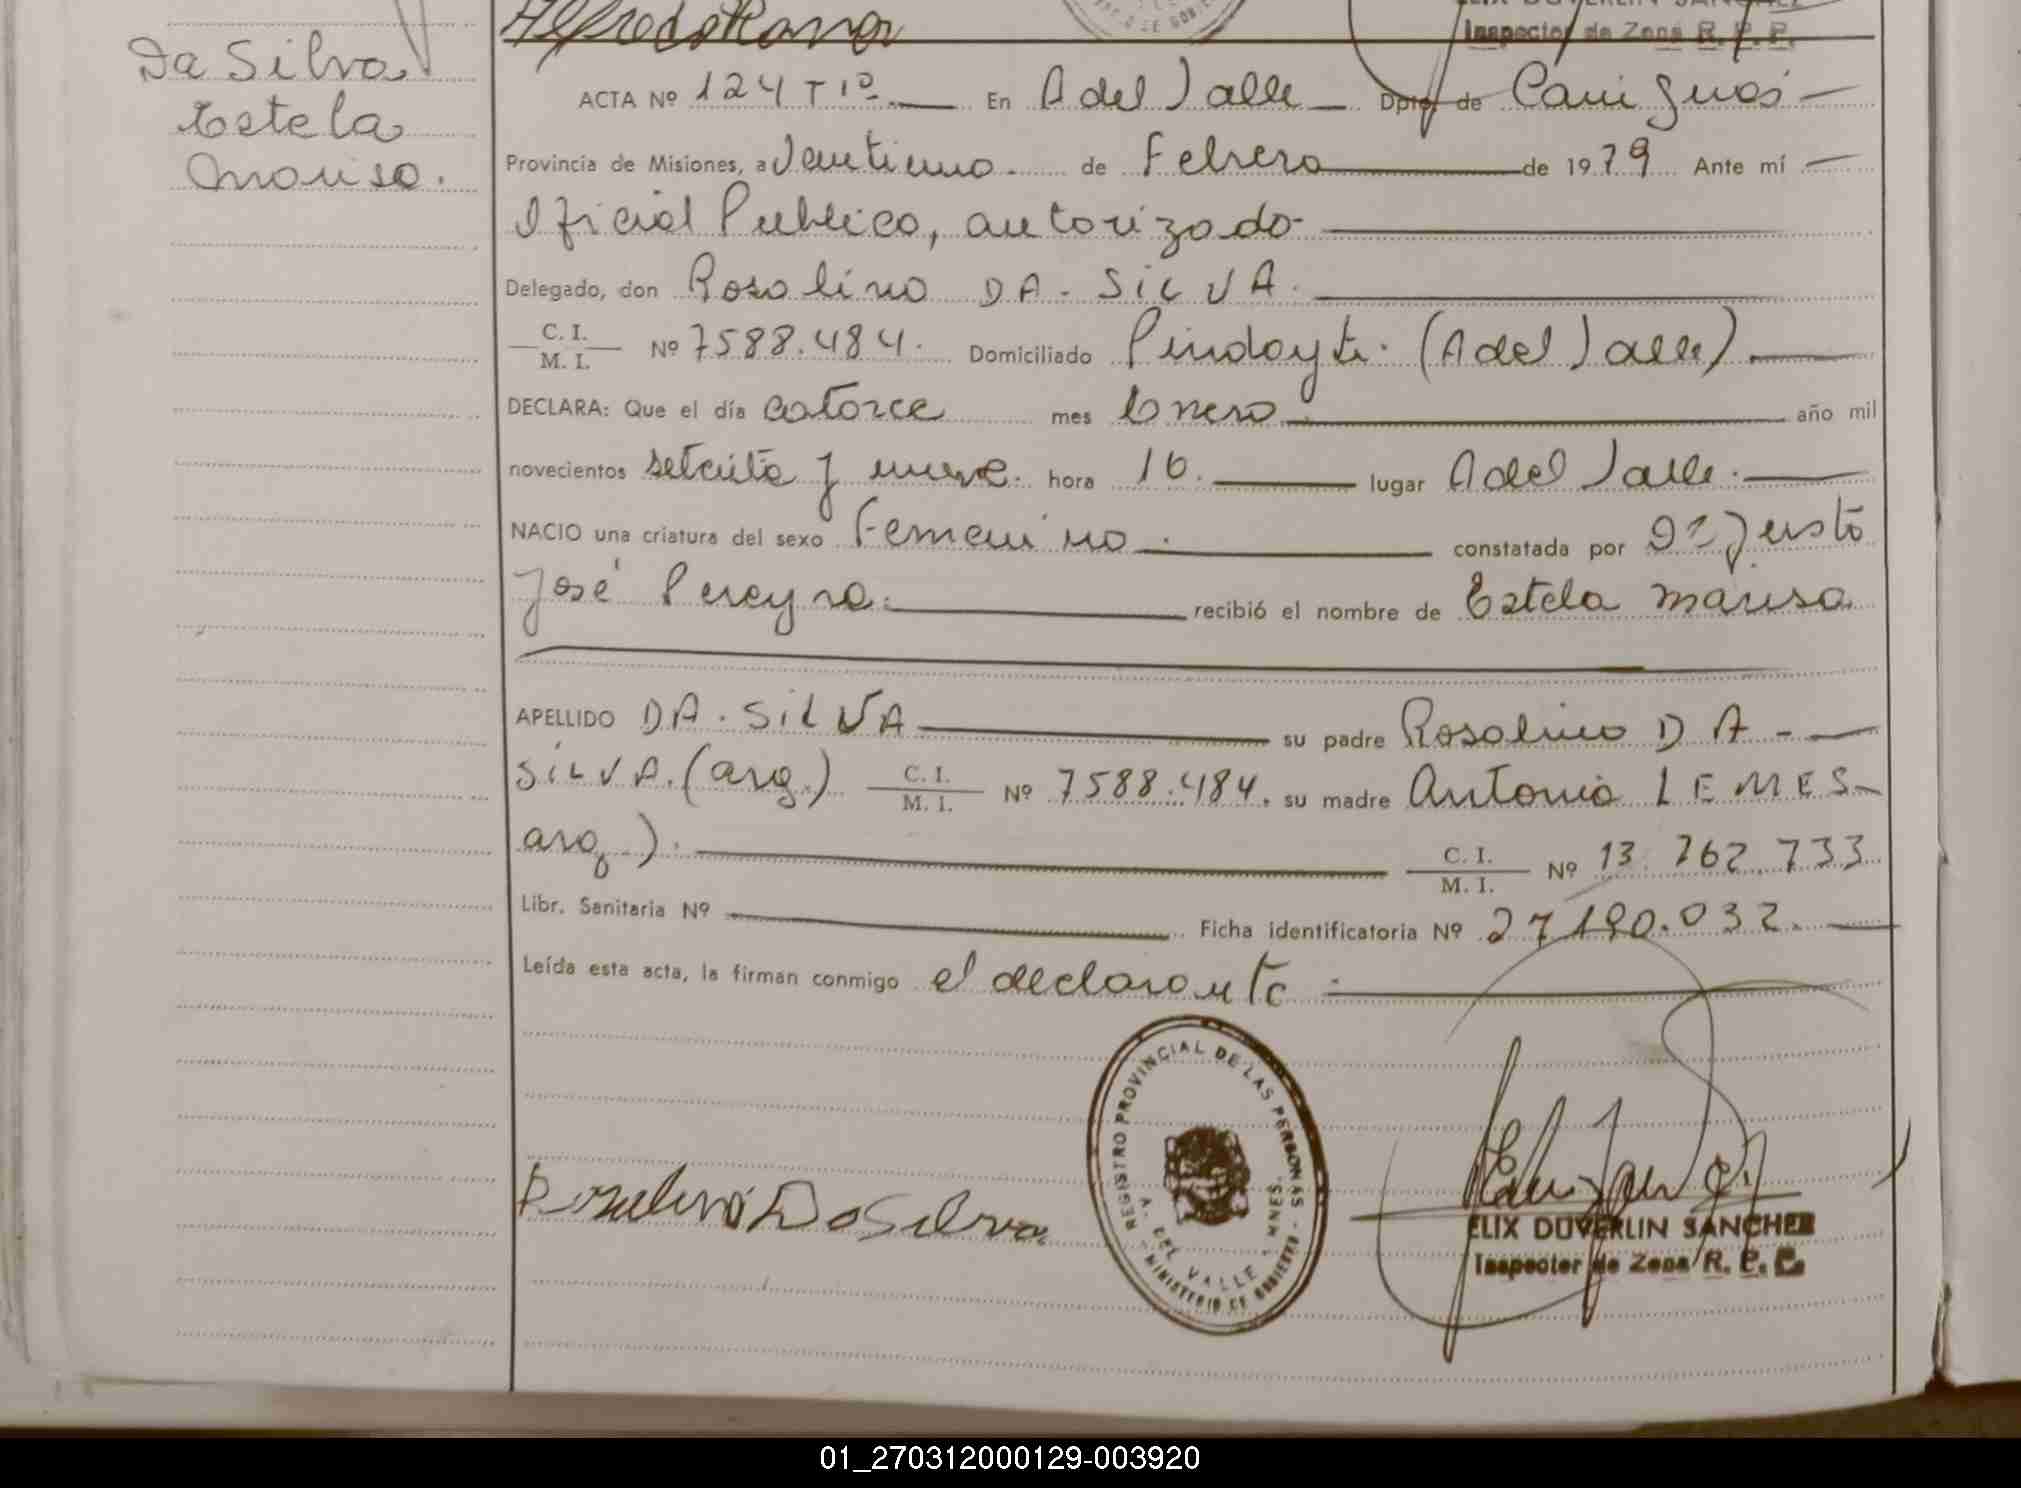 Da Silva
Estela
Marisa.
ACTA Nº 124 Tº 1º En A del Valle Dpto. de Cainguás
Provincia de Misiones, a Ventiuno. de Febrero de 1979 Ante mí
Oficial Publico, autorizado
Delegado, don Rosolino DA-SILVA.
C. I.
M. I. Nº 7588.484. Domiciliado Pindayti. (A del Valle)
DECLARA: Que el día catorce mes Enero año mil
novecientos setenta y nueve. hora 16. lugar A del Valle.
NACIO una criatura del sexo Femenino. constatada por Dº Justo
José Pereyra. recibió el nombre de Estela Marisa
APELLIDO DA-SILVA su padre Rosolino DA-
SILVA. (arg.) C. I.
M. I. Nº 7588.484. su madre Antonia LEMES
arg). C. I.
M. I. Nº 13.762.733
Libr. Sanitaria Nº Ficha identificatoria Nº 27190.032.
Leída esta acta, la firman conmigo el declarante
REGISTRO PROVINCIAL DE LAS PERSONAS
A. DEL VALLE
MINISTERIO DE GOBIERNO
Rosalino Da Silva
ELIX DUVERLIN SANCHEZ
Inspector de Zona R. P. P.
01_270312000129-003920